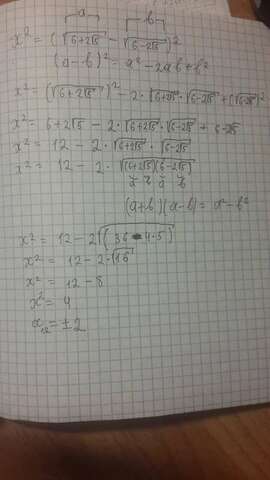 a b
x² = (√6+2√5 - √6-2√5)²
(a-b)² = a² - 2ab + b²
x² = (√6+2√5)² - 2·√6+2√5·√6-2√5 + (√6-2√5)²
x² = 6+2√5 - 2·√6+2√5·√6-2√5 + 6-2√5
x² = 12 - 2·√6+2√5·√6-2√5
x² = 12 - 2·√(6+2√5)(6-2√5)
a b a b
(a+b)(a-b) = a² - b²
x² = 12 - 2√(36-4·5)
x² = 12 - 2·√16
x² = 12 - 8
x² = 4
x₁₂ = ±2